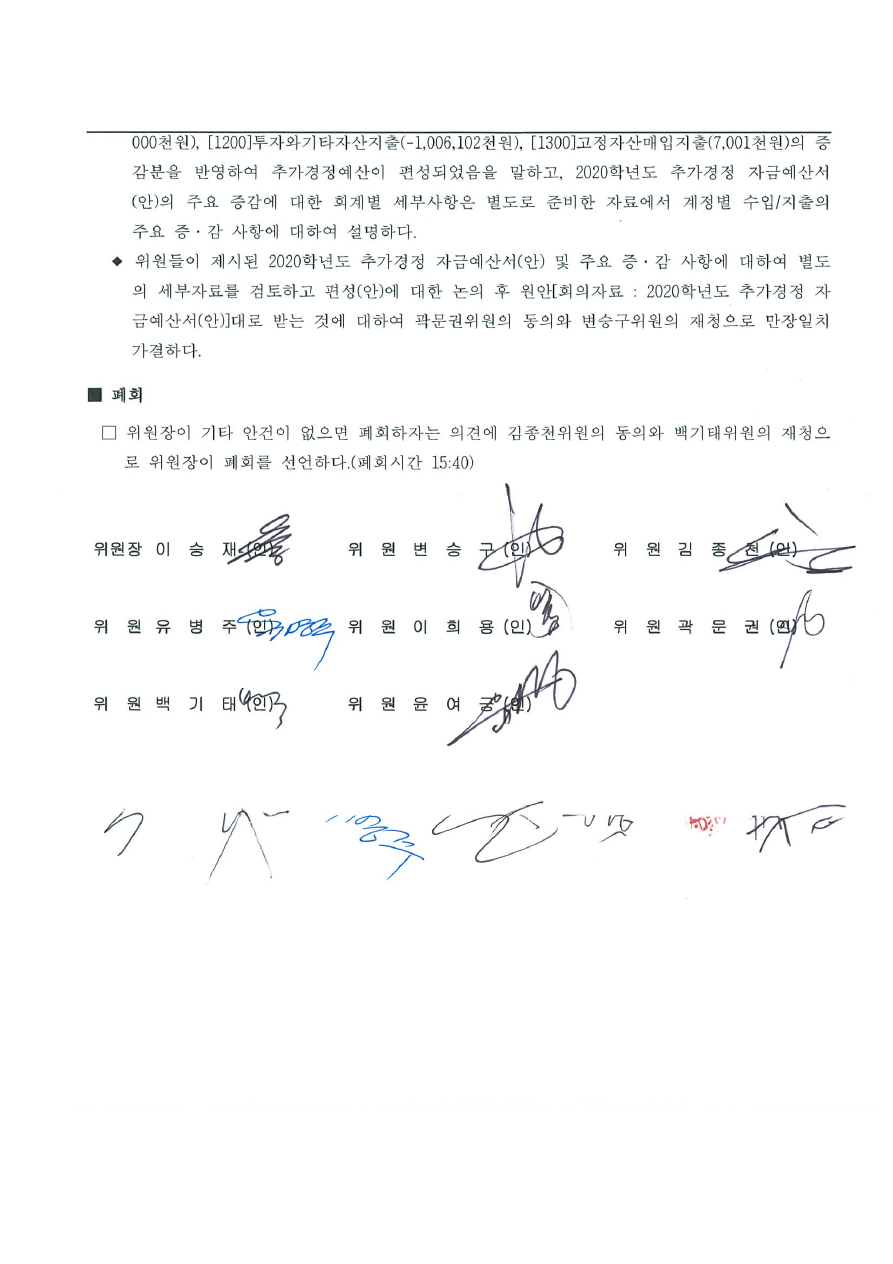 000천원), [1200]투자와기타자산지출(-1,006,102천원), [1300]고정자산매입지출(7,001천원)의 증
감분을 반영하여 추가경정예산이 편성되었음을 말하고, 2020학년도 추가경정 자금예산서
(안)의 주요 증감에 대한 회계별 세부사항은 별도로 준비한 자료에서 계정별 수입/지출의
주요 증·감 사항에 대하여 설명하다.
◆ 위원들이 제시된 2020학년도 추가경정 자금예산서(안) 및 주요 증·감 사항에 대하여 별도
의 세부자료를 검토하고 편성(안)에 대한 논의 후 원안[회의자료 : 2020학년도 추가경정 자
금예산서(안)]대로 받는 것에 대하여 곽문권위원의 동의와 변승구위원의 재청으로 만장일치
가결하다.
■ 폐회
□ 위원장이 기타 안건이 없으면 폐회하자는 의견에 김종천위원의 동의와 백기태위원의 재청으
로 위원장이 폐회를 선언하다.(폐회시간 15:40)
위원장 이 승 재 (인) 위 원 변 승 구 (인) 위 원 김 종 천 (인)
위 원 유 병 주 (인) 위 원 이 희 용 (인) 위 원 곽 문 권 (인)
위 원 백 기 태 (인) 위 원 윤 여 궁 (인)